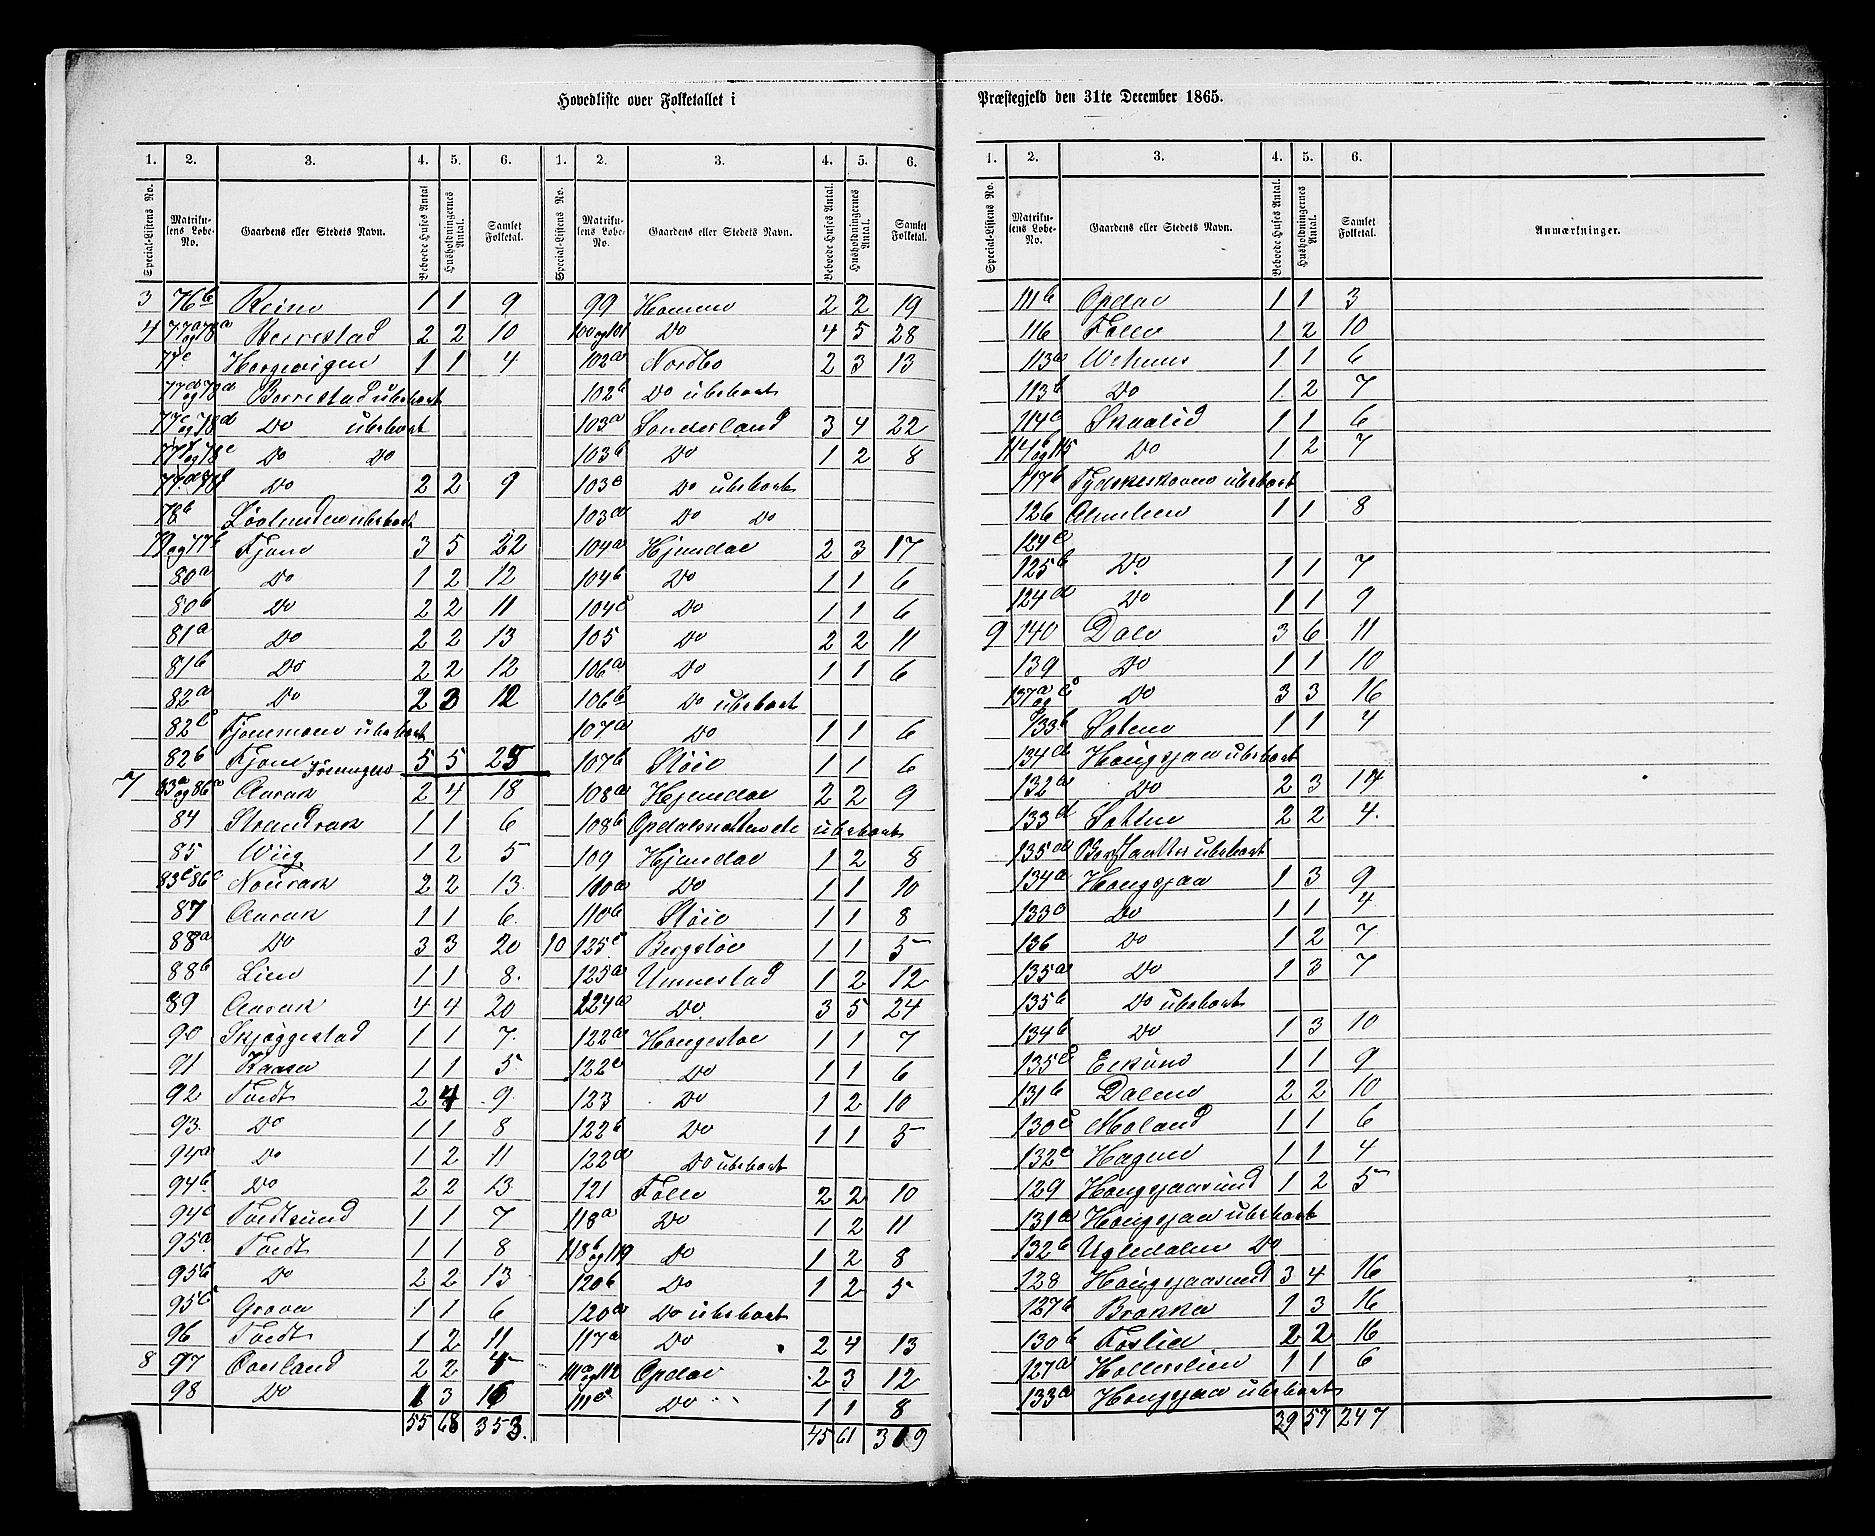 Hovedliste over Folketallet i
1. 2. 3. 4. 5. 6. 1. 2. 3. 4. 5. 6.
Special-Listens No. Matrikulens Løbe-No. Gaardens eller Stedets Navn. Beboede Huses Antal Husholdningernes Antal. Samlet Folketal. Special-Listens No. Matrikulens Løbe-No. Gaardens eller Stedets Navn. Beboede Huses Antal. Husholdningernes Antal. Samlet Folketal.
3 76b Reine 1 1 9
4 77a og 78a Berrestad 2 2 10
77c 1 1 4
77d og 78d Borrestad ubeboet
77e og 78d Do ubeboet
77f og 78e Do Do
Do 2 2 9
78b ubeboet
79 og 77b Fjone 3 5 22
80a Do 1 2 12
80b Do 2 2 11
81a Do 2 2 13
81b Do 2 2 12
82a Do 2 3 12
82c Fjonemoen ubeboet
82b Fjone 5 5 25
7 83a og 86a Aarak 2 4 18
84 Strandrak 1 1 6
85 Wiig 1 2 5
83c 86c Nourak 2 2 13.
87 Aarak 1 1 6.
88a Do 3 3 20
88b Lien 1 1 8.
89 Aarak 4 4 20
90 Skjøggestad 1 1 7.
91 Kaasa 1 1 5
92 Tvedt 2 4 9.
93. Do 1 1 8
94a Do 1 2 11
94b. Do 2 2 13
94c Tvedtsund 1 1 7
95a. Tvedt 1 1 8
95b Do 2 2 13
95c Grova 1 1 6
96 Tvedt 1 2 11
8 97 Overland 2 2 4
98 Do 1 3 16
55 68 353.
99 Homme 2 2 19
100 og 101 Do 4 5 28
102a Nordbo 2 3 13
102b Do ubeboet
103a Sonderland 3 4 22
103b Do 1 2 8
103c Do ubeboet
103d Do Do
104a Hjemdal 2 3 17
104b Do 1 1 6
104c Do 1 1 6
105 Do 2 2 11
106a Do 1 1 6
106b Do ubeboet
107a Do 1 1 6
107b Støie 1 1 6
108a Hjemdal 2 2 9
108b ubeboet
109 Hjemdal 1 2 8
110a Do 1 1 10
110b Støie 1 1 8
10 125c Bergstøe 1 1 5
125a Unnestad 1 2 12
124a Do. 3 5 24
122a Haugestøe 1 1 7
122c Do 1 1 6
123 Do 1 2 10
122b Do 1 1 5
122d Do ubeboet
121 Tolle 2 2 10
118a Do 1 2 11
118b og 119 Do 1 2 8
120b Do 1 2 5
120a Do ubeboet
117a Do 2 4 13
111a og 112 Opdal 2 3 12
111c Do 1 1 8
45 61 319
Præstegjeld den 31te December 1865.
1. 2. 3. 4. 5. 6.
Special-Listens No. Matrikulens Løbe-No. Gaardens eller Stedets Navn. Beboede Huses Antal. Husholdningernes Antal. Samlet Folketal. Anmærkninger.
111b Opdal 1 1 3
116 Tolle 1 2 10
113a Wehuus 1 1 6
113b Do 1 2 7
114a Skaalid 1 1 6
114b og 115 Do 1 2 7
117b ubeboet
126 Almelien 1 1 8
124c
125b Do. 1 1 7
124d Do 1 1 9
9 140 Dale 3 6 11
139 Do 1 1 10
137a og c Do 3 3 16
133b Solem 1 1 4
134d Haugsjaa ubeboet
132a Do 2 3 14
133d 2 2 4.
135d ubeboet
134a Haugsjaa 1 3 9
133c Do 1 1 4
136 Do 1 2 7
135a Do 1 3 7
135b Do ubeboet
134b Do 1 3 10
135c Eiksund 1 1 9
131b Dalene 2 2 10
130c Moland 1 1 6
132c Hagene 1 1 4
129 Haugsjaasund 1 2 5
131a Haugsjaa ubeboet
132b Ugledalen Do
128 Haugsjaasund 3 4 16
127b Brokka 1 3 16
130b Foslid 2 2 16
127a 1 1 6
133a Haugsjaa ubeboet
39 57 247